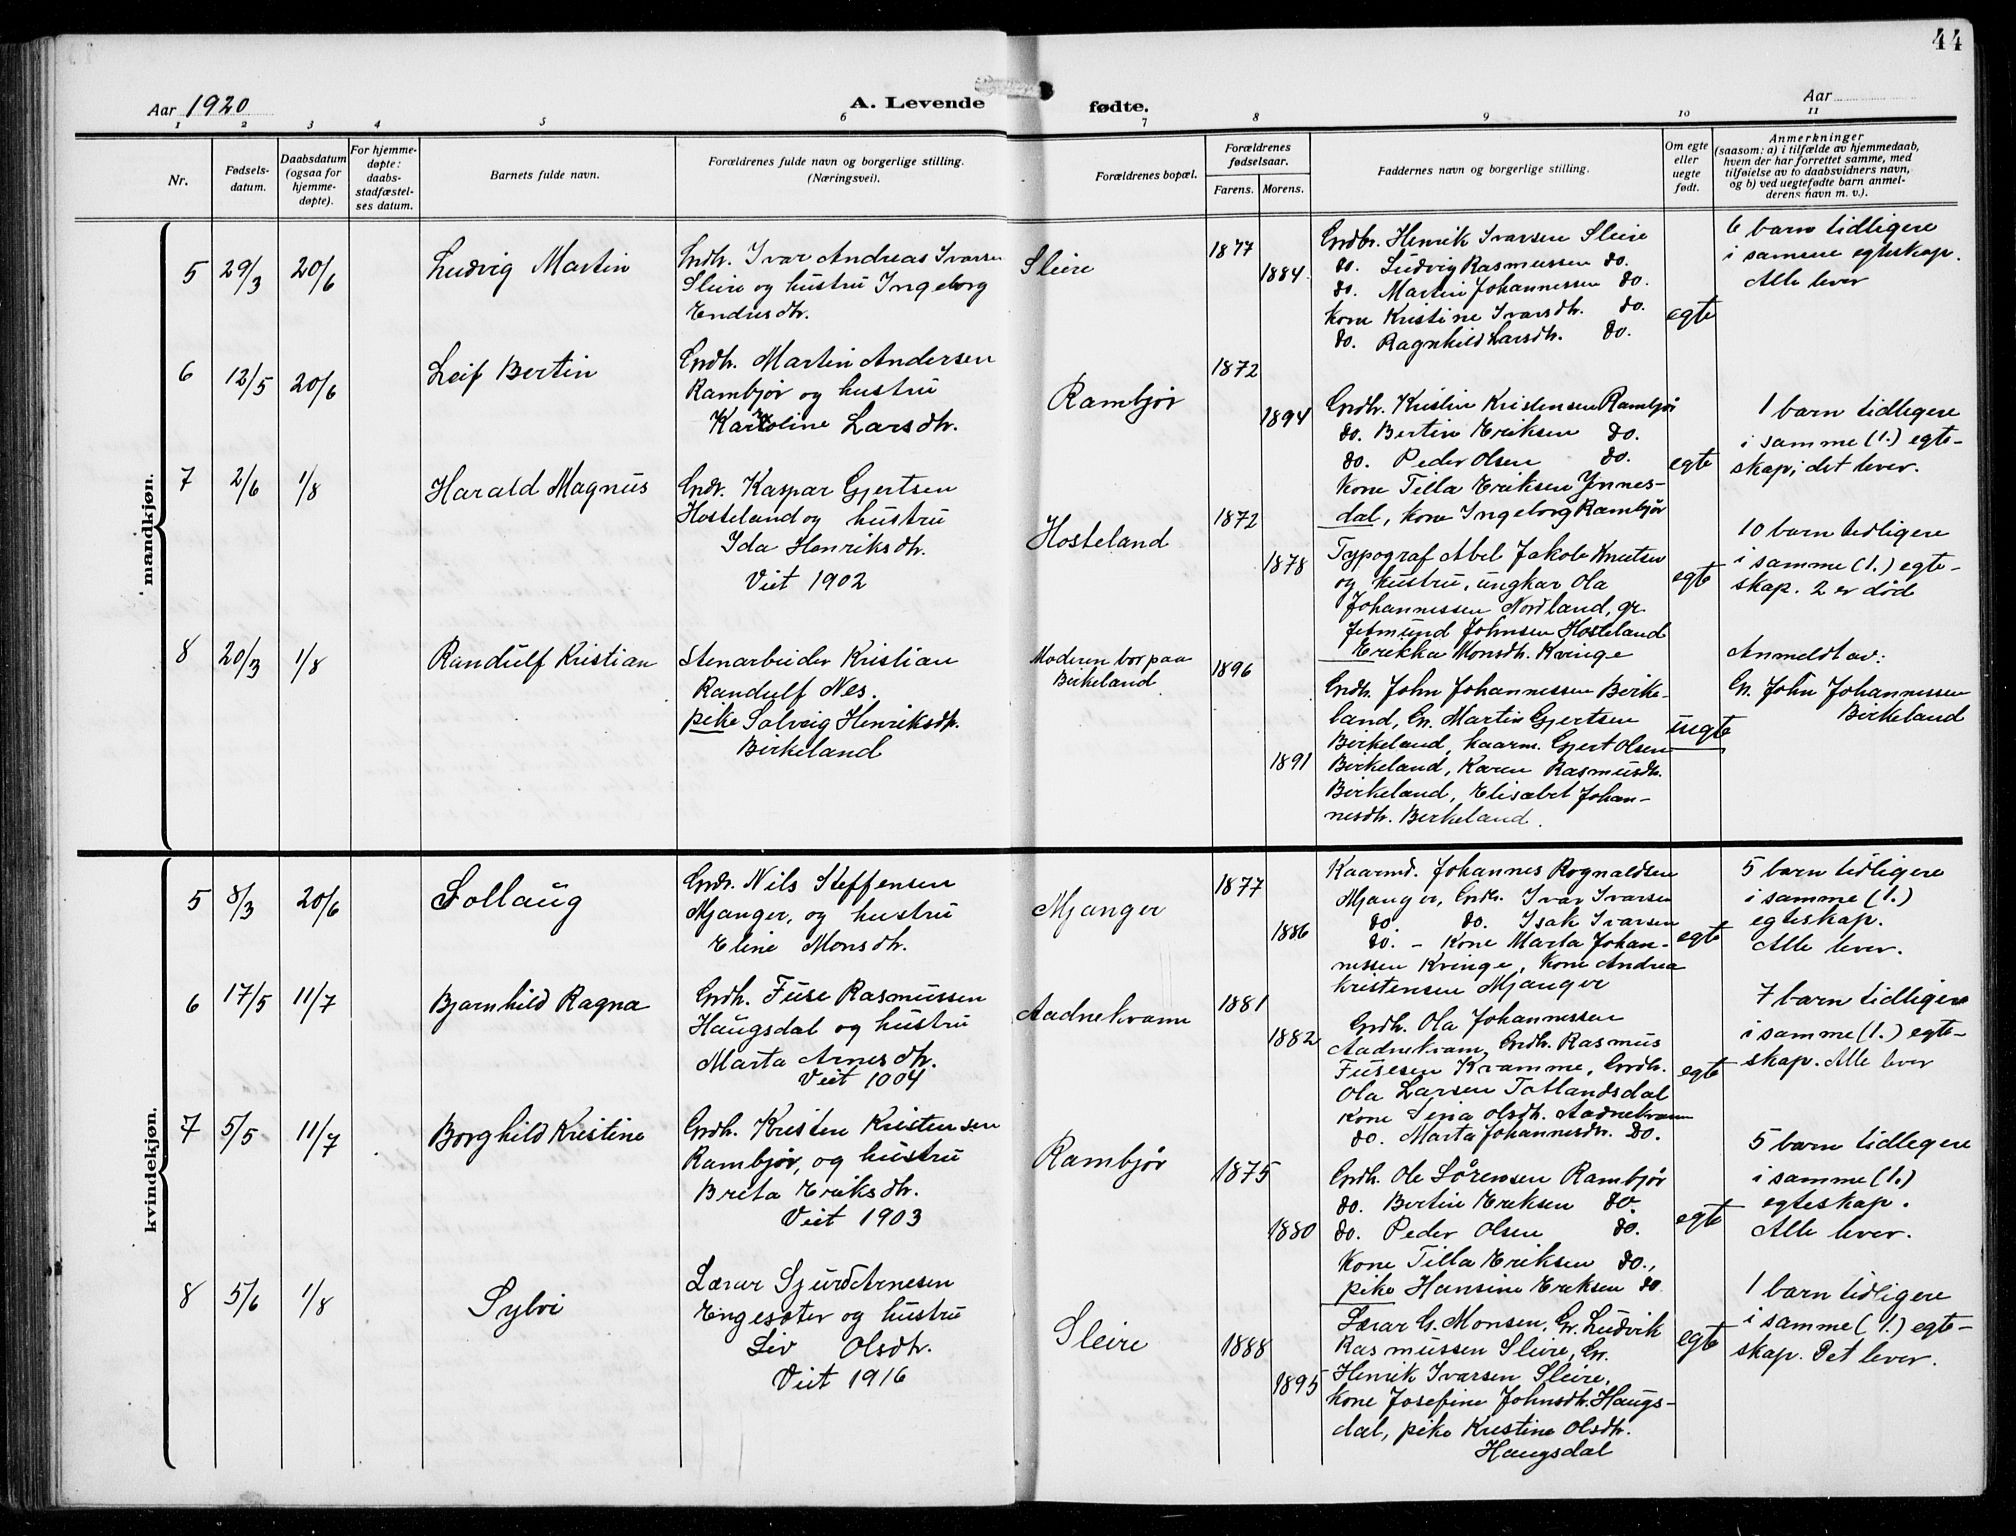 44
Aar 1920
A. Levende fødte.
Aar
1 2 3 4 5 6 7 8 9 10 11
Nr.
Fødsels-
datum.
Daabsdatum
(ogsaa for
hjemme-
døpte).
For hjemme-
døpte:
daabs-
stadfæstel-
ses datum.
Barnets fulde navn.
Forældrenes fulde navn og borgerlige stilling.
(Næringsvei).
Forældrenes bopæl.
Forældrenes
fødselsaar.
Farens. Morens.
Faddernes navn og borgerlige stilling.
Om egte
eller
uegte
født.
Anmerkninger
(saasom: a) i tilfælde av hjemmedaab,
hvem der har forrettet samme, med
tilføielse av to daabsvidners navn,
og b) ved uegtefødte barn anmel-
derens navn m. v.).
mandkjøn.
5 29/3 20/6 Ludvig Martin
Grdbr. Ivar Andreas Ivarsen
Sleire og hustru Ingeborg
Endresdtr.
Sleire
1877
1884.
Grdbr. Henrik Ivarsen Sleire
do. Ludvig Rasmussen do.
do. Martin Johannessen do.
Kone Kristine Ivarsdtr. do.
do. Ragnhild Larsdtr. do.
egte
6 barn tidligere
i samme egteskap.
Alle lever
6 12/5 20/6 Leif Bertin
Grdbr. Martin Andersen
Rambjør og hustru
Karoline Larsdtr.
Rambjør
1872
1894
Grdbr. Kristin Kristensen Rambjør
do. Bertin Eriksen do.
do. Peder Olsen do.
Kone Tilla Eriksen Ynnes-
dal, kone Ingeborg Rambjør
egte
1 barn tidligere
i samme (1.) egte-
skap; det lever.
7 2/6 1/8 Harald Magnus
Grdr. Kaspar Gjertsen
Hosteland og hustru
Ida Henriksdtr.
Viet 1902
Hosteland
1872
1878
Typograf Abel Jakob Knutsen
og hustru, ungkar Ola
Johannessen Nordland, gr.
Jetmund Johnsen Hosteland
Erikka Monsdtr. Kvinge
egte
10 barn tidligere
i samme (1.) egte-
skap. 2 er død
8 20/3 1/8 Randulf Kristian
Stenarbeider Kristian
Randulf Nes.
pike Solveig Henriksdtr.
Birkeland
Moderen bor paa
Birkeland
1896
1891
Grdbr. John Johannessen Birke-
land, Gr. Martin Gjertsen
Birkeland, kaarm. Gjert Olsen
Birkeland, Karen Rasmusdtr.
Birkeland, Elisabet Johan-
nesdtr. Birkeland.
uegte
Anmeldt av:
Gr. John Johannessen
Birkeland
kvindekjøn.
5 8/3 20/6 Sollaug
Grdr. Nils Steffensen
Mjanger, og hustru
Eline Monsdtr.
Mjanger
1877
1886
Kaarmd. Johannes Rognaldsen
Mjanger, Grdbr. Ivar Ivarsen
do. do. Isak Ivarsen
do. - Kone Marta Johan-
nessen Kvinge, Kone Andrea
Kristensen Mjanger
egte
5 barn tidligere
i samme (1.)
egteskap.
Alle lever.
6 17/5 11/7 Bjarnhild Ragna
Grdbr. Fuse Rasmussen
Haugsdal og hustru
Marta Arnesdtr.
Viet 1004
Aadnekvam
1881
1882
Grdbr. Ola Johannessen
Aadnekvam, Grdbr. Rasmus
Fusesen Kvamme, Grdbr.
Ola Larsen Totlandsdal
Kone Sina Olsdtr. Aadnekvam
do. Marta Johannesdtr. do.
egte
7 barn tidligere
i samme (1.) egte-
skap. Alle lever
7 5/5 11/7 Borghild Kristine
Grdbr. Kristen Kristensen
Rambjør, og hustru
Breta Eriksdtr.
Viet 1903
Rambjør
1875
1880
Grdbr. Ole Sørensen Rambjør
do. Bertin Eriksen do.
do. Peder Olsen do.
Kone Tilla Eriksen do.,
pike Hansine Eriksen do
egte
5 barn tidligere
i samme (1.)
egteskap.
Alle lever.
8 5/6 1/8 Sylvi
Lærar Sjurd Arnesen
Engesæter og hustru
Liv Olsdtr.
Viet 1916
Sleire
1888
1895
Lærar G. Monsen, Gr. Ludvik
Rasmussen Sleire, Gr.
Henrik Ivarsen Sleire,
Kone Josefine Johnsdtr. Haugs-
dal, pike Kristine Olsdtr.
Haugsdal
egte
1 barn tidligere
i samme (1.) egte-
skap. Det lever.